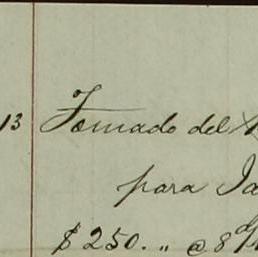 13 Tomado del
para
$250. „ @ 8